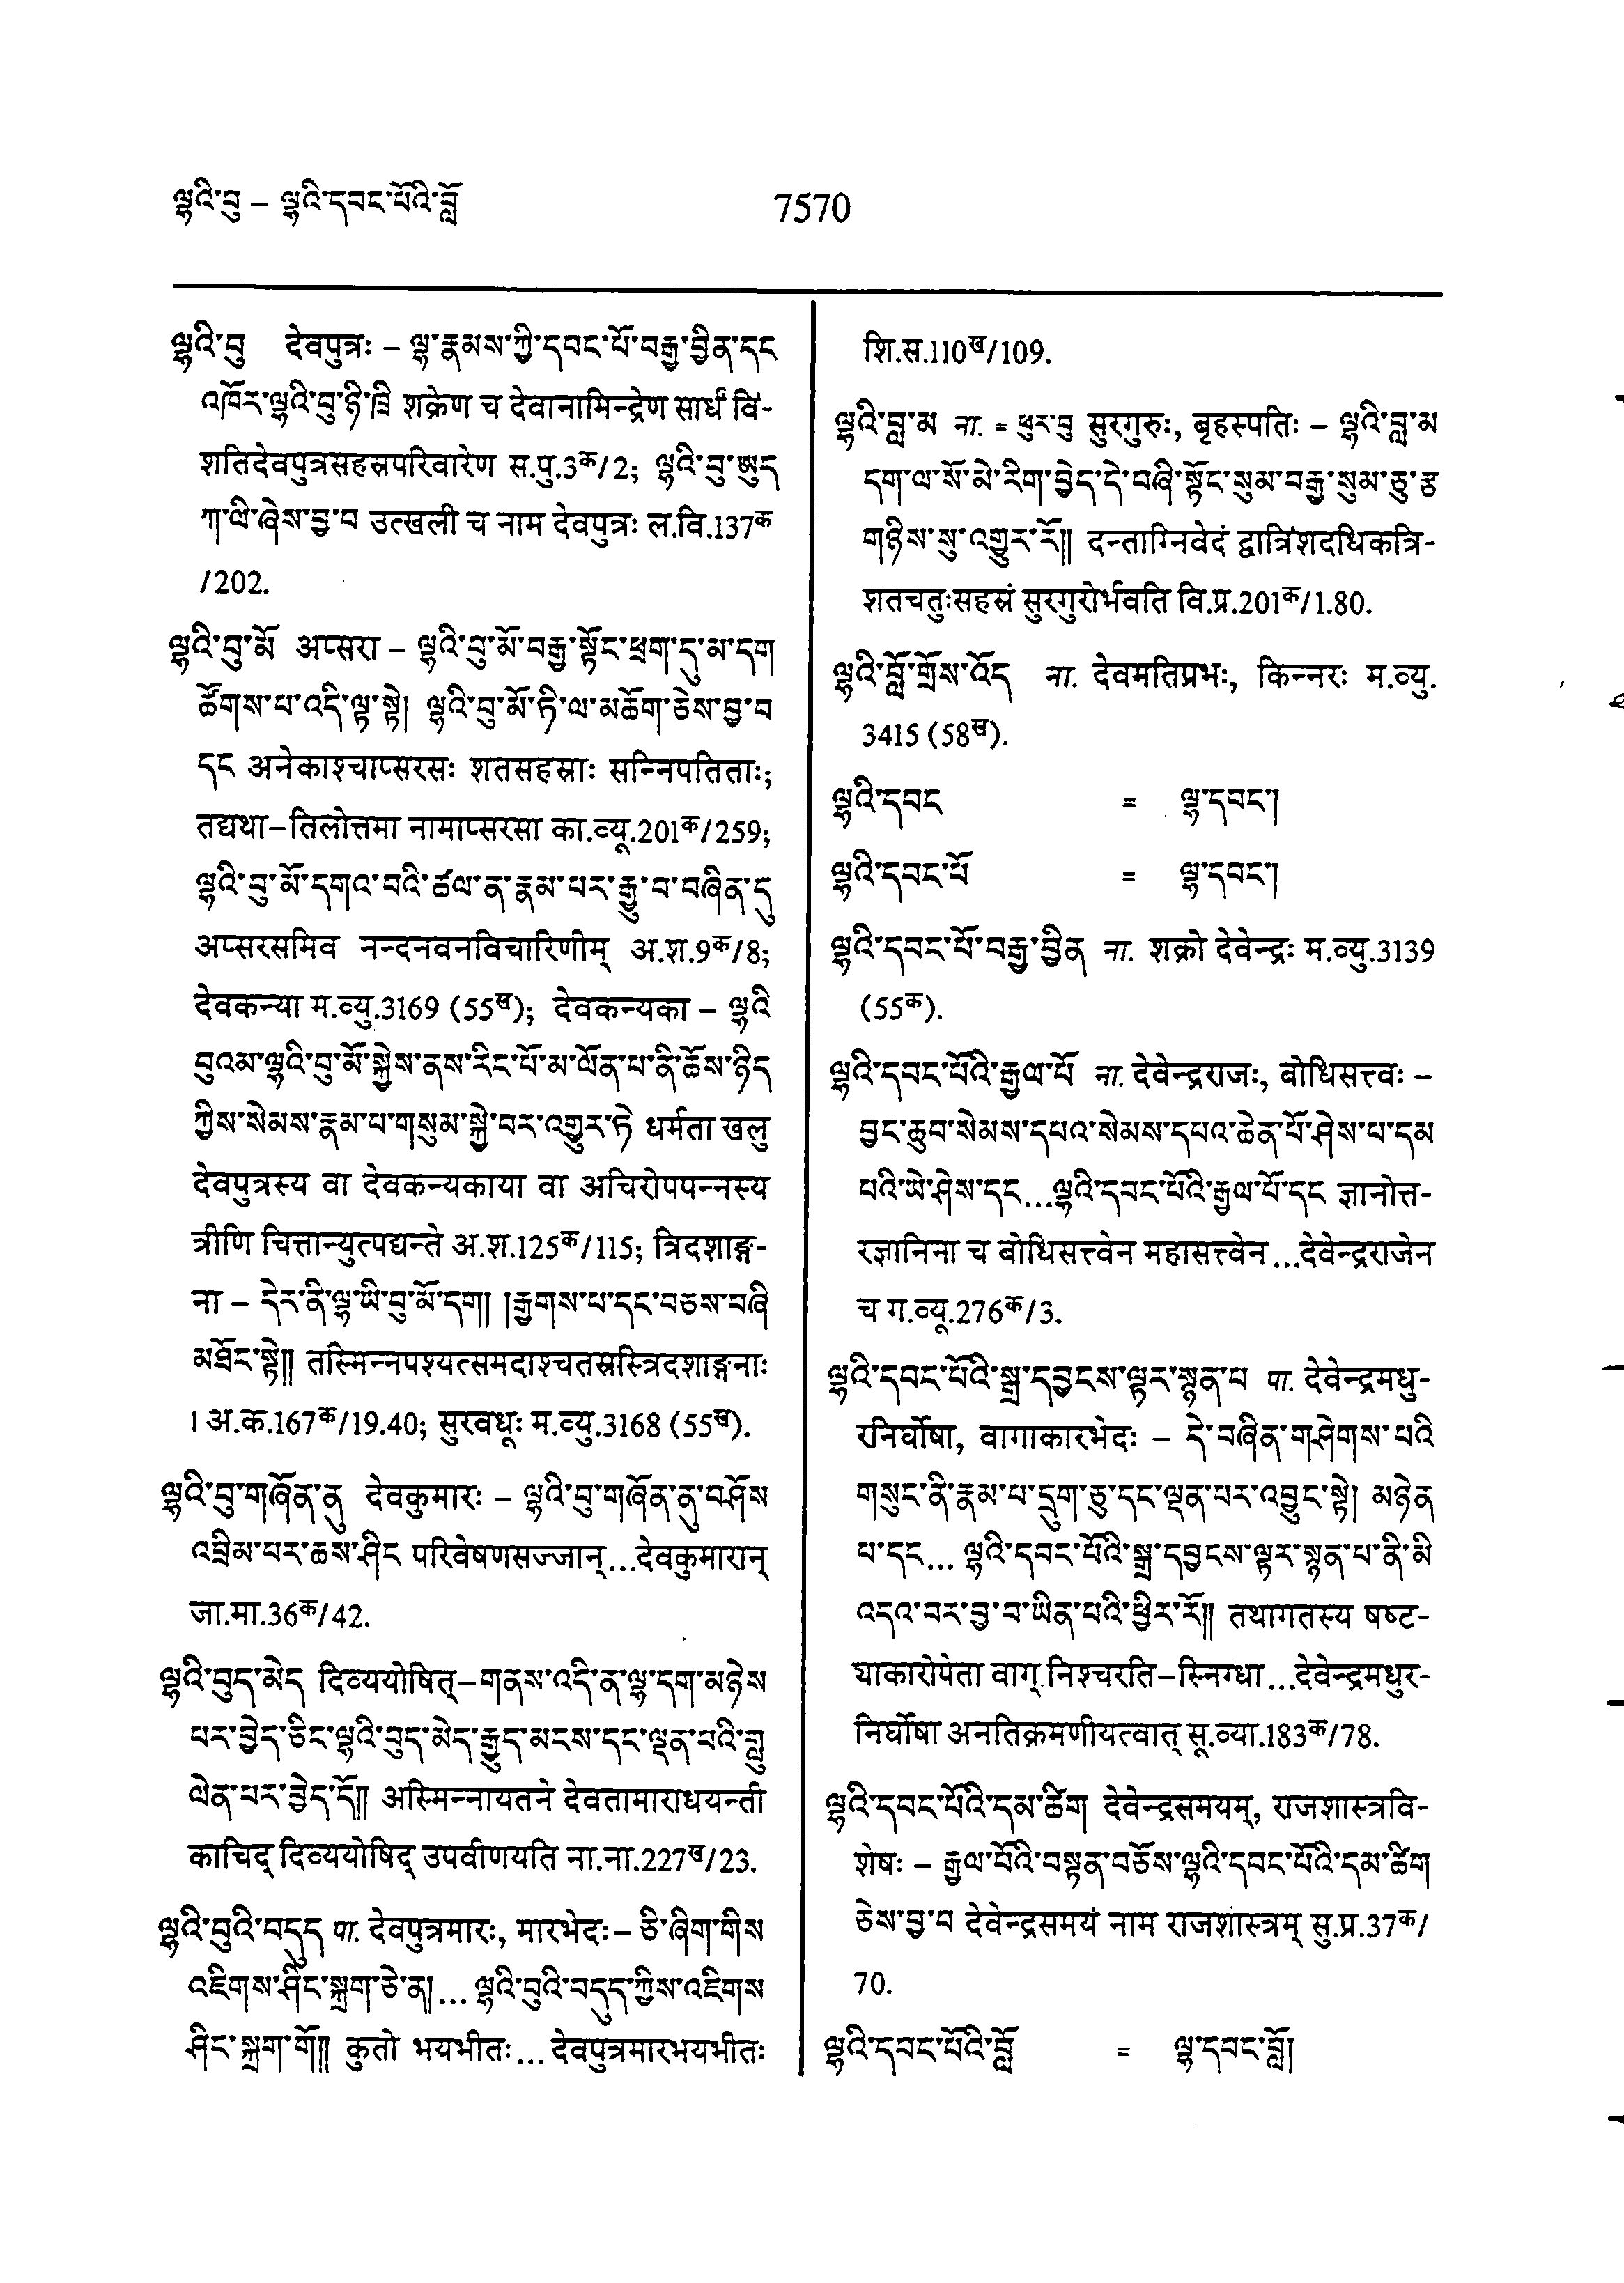 ལྷའི་བུ – ལྷའི་དབང་པོའི་བློ
7570
ལྷའི་བུ देवपुत्रः – ལྷ་རྣམས་ཀྱི་དབང་པོ་བརྒྱ་བྱིན་དང
འཁོར་ལྷའི་བུ་ཉི་ཁྲི शक्रेण च देवानामिन्द्रेण सार्धं विं-
शतिदेवपुत्रसहस्रपरिवारेण स.पु.3क/2; ལྷའི་བུ་ཨུད
ཀ་ལི་ཞེས་བྱ་བ उत्खली च नाम देवपुत्रः ल.वि.137क
/202.
ལྷའི་བུ་མོ अप्सरा – ལྷའི་བུ་མོ་བརྒྱ་སྟོང་ཕྲག་དུ་མ་དག
ཚོགས་པ་འདི་ལྟ་སྟེ། ལྷའི་བུ་མོ་ཏི་ལ་མཆོག་ཅེས་བྱ་བ
དང अनेकाश्चाप्सरसः शतसहस्राः सन्निपतिताः;
तद्यथा–तिलोत्तमा नामाप्सरसा का.व्यू.201क/259;
ལྷའི་བུ་མོ་དགའ་བའི་ཚལ་ན་རྣམ་པར་རྒྱུ་བ་བཞིན་དུ
अप्सरसमिव नन्दनवनविचारिणीम् अ.श.9क/8;
देवकन्या म.व्यु.3169 (55ख); देवकन्यका – ལྷའི
བུའམ་ལྷའི་བུ་མོ་སྐྱེས་ནས་རིང་པོ་མ་ལོན་པ་ནི་ཆོས་ཉིད
ཀྱིས་སེམས་རྣམ་པ་གསུམ་སྐྱེ་བར་འགྱུར་ཏེ धर्मता खलु
देवपुत्रस्य वा देवकन्यकाया वा अचिरोपपन्नस्य
त्रीणि चित्तान्युत्पद्यन्ते अ.श.125क/115; त्रिदशाङ्ग-
ना – དེར་ནི་ལྷ་ཡི་བུ་མོ་དག། །རྒྱགས་པ་དང་བཅས་བཞི
མཐོང་སྟེ།། तस्मिन्नपश्यत्समदाश्चतस्रस्त्रिदशाङ्गनाः
। अ.क.167क/19.40; सुरवधूः म.व्यु.3168 (55ख).
ལྷའི་བུ་གཞོན་ནུ देवकुमारः – ལྷའི་བུ་གཞོན་ནུ་བཤོས
འབྲིམ་པར་ཆས་ཤིང परिवेषणसज्जान्...देवकुमारान्
जा.मा.36क/42.
ལྷའི་བུད་མེད दिव्ययोषित्–གནས་འདི་ན་ལྷ་དག་མཉེས
པར་བྱེད་ཅིང་ལྷའི་བུད་མེད་རྒྱུད་མངས་དང་ལྡན་པའི་གླུ
ལེན་པར་བྱེད་དོ།། अस्मिन्नायतने देवतामाराधयन्ती
काचिद् दिव्ययोषिद् उपवीणयति ना.ना.227ख/23.
ལྷའི་བུའི་བདུད पा. देवपुत्रमारः, मारभेदः– ཅི་ཞིག་གིས
འཇིགས་ཤིང་སྐྲག་ཅེ་ན།... ལྷའི་བུའི་བདུད་ཀྱིས་འཇིགས
ཤིང་སྐྲག་གོ།། कुतो भयभीतः... देवपुत्रमारभयभीतः
शि.स.110ख/109.
ལྷའི་བླ་མ ना. = ཕུར་བུ सुरगुरुः, बृहस्पतिः – ལྷའི་བླ་མ
དག་ལ་སོ་མེ་རིག་བྱེད་དེ་བཞི་སྟོང་སུམ་བརྒྱ་སུམ་ཅུ་རྩ
གཉིས་སུ་འགྱུར་རོ།། दन्ताग्निवेदं द्वात्रिंशदधिकत्रि-
शतचतुःसहस्रं सुरगुरोर्भवति वि.प्र.201क/1.80.
ལྷའི་བློ་གྲོས་འོད ना. देवमतिप्रभः, किन्नरः म.व्यु.
3415 (58ख).
ལྷའི་དབང = ལྷ་དབང་།
ལྷའི་དབང་པོ = ལྷ་དབང་།
ལྷའི་དབང་པོ་བརྒྱ་བྱིན ना. शक्रो देवेन्द्रः म.व्यु.3139
(55क).
ལྷའི་དབང་པོའི་རྒྱལ་པོ ना. देवेन्द्रराजः, बोधिसत्त्वः –
བྱང་ཆུབ་སེམས་དཔའ་སེམས་དཔའ་ཆེན་པོ་ཤེས་པ་དམ
པའི་ཡེ་ཤེས་དང...ལྷའི་དབང་པོའི་རྒྱལ་པོ་དང ज्ञानोत्त-
रज्ञानिना च बोधिसत्त्वेन महासत्त्वेन...देवेन्द्रराजेन
च ग.व्यू.276क/3.
ལྷའི་དབང་པོའི་སྒྲ་དབྱངས་ལྟར་སྙན་པ पा. देवेन्द्रमधु-
रनिर्घोषा, वागाकारभेदः – དེ་བཞིན་གཤེགས་པའི
གསུང་ནི་རྣམ་པ་དྲུག་ཅུ་དང་ལྡན་པར་འབྱུང་སྟེ། མཉེན
པ་དང... ལྷའི་དབང་པོའི་སྒྲ་དབྱངས་ལྟར་སྙན་པ་ནི་མི
འདའ་བར་བྱ་བ་ཡིན་པའི་ཕྱིར་རོ།། तथागतस्य षष्ट-
याकारोपेता वाग् निश्चरति–स्निग्धा...देवेन्द्रमधुर-
निर्घोषा अनतिक्रमणीयत्वात् सू.व्या.183क/78.
ལྷའི་དབང་པོའི་དམ་ཚིག देवेन्द्रसमयम्, राजशास्त्रवि-
शेषः – རྒྱལ་པོའི་བསྟན་བཅོས་ལྷའི་དབང་པོའི་དམ་ཚིག
ཅེས་བྱ་བ देवेन्द्रसमयं नाम राजशास्त्रम् सु.प्र.37क/
70.
ལྷའི་དབང་པོའི་བློ = ལྷ་དབང་བློ།